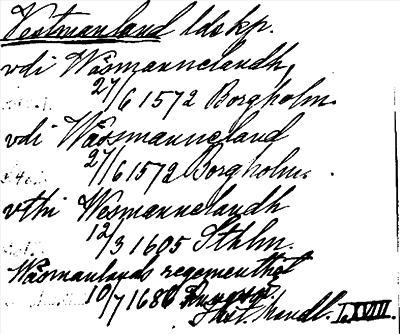 Vestmanland lds kp.
vdi Wäsmannelandh,
27/6 1572 Borgholm.
vdi Wäsmanneland
27/6 1572 Borgholm.
vthi Wesmannelandh
12/3 1605 Sthlm.
Wäsmanlands regementhe
10/7 1686
handl. I. XVIII.